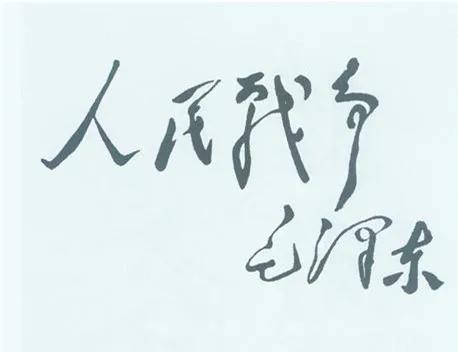 人民战争
毛泽东